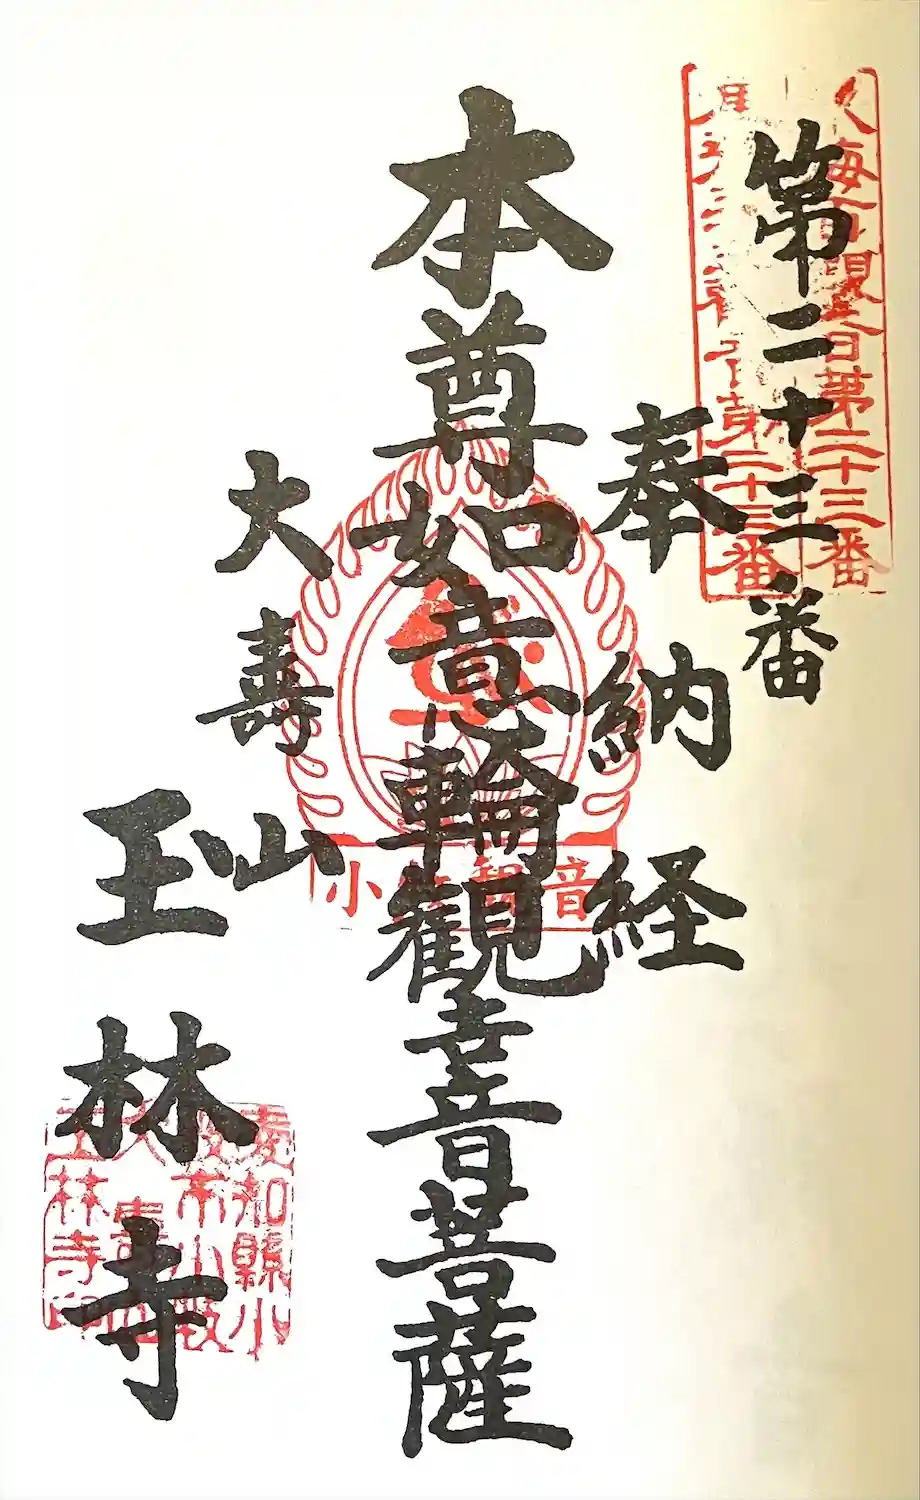 第二十三番
奉納経
本尊如意輪觀世音菩薩
大壽山
玉林寺
第二十三番
第二十三番
愛知縣小
牧市小牧
大壽山
玉林寺印